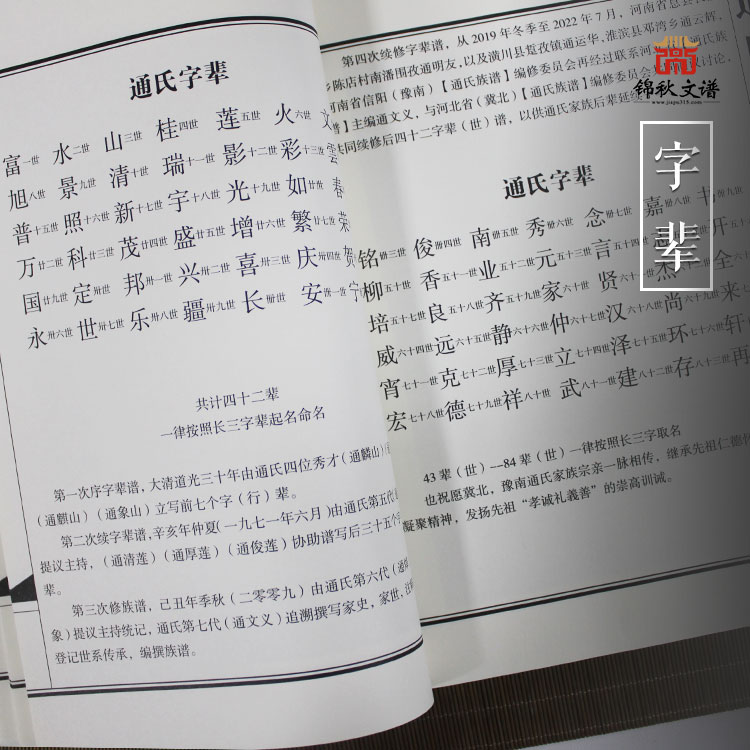 通氏字辈
富一世 水二世 山三世 桂四世 莲五世 火六世 文
旭八世 景九世 清十世 瑞十一世 影十二世 彩十三世 雲
普十五世 照十六世 新十七世 宇十八世 光十九世 如廿世 春
万廿二世 科廿三世 茂廿四世 盛廿五世 增廿六世 繁廿七世 荣
国廿九世 定卅世 邦卅一世 兴卅二世 喜卅三世 庆卅四世 贺
永卅六世 世卅七世 乐卅八世 疆卅九世 长卌世 安卌一世 宁
共计四十二辈
一律按照长三字辈起名命名
第一次序字辈谱，大清道光三十年由通氏四位秀才（通麟山）
（通麒山）（通象山）立写前七个字（行）辈。
第二次续字辈谱，辛亥年仲夏（一九七一年六月）由通氏第五代
提议主持，（通清莲）（通厚莲）（通俊莲）协助谱写后三十五个字
辈。
第三次修族谱，己丑年季秋（二零零九）由通氏第六代（通
象）提议主持统记，通氏第七代（通文义）追溯撰写家史，家世，
登记世系传承，编撰族谱。
第四次续修字辈谱，从2019年冬季至2022年7月，河南省息县
乡陈店村南潘围孜通明友，以及潢川县踅孜镇通运华，淮滨县邓湾乡通云辉，
河南省信阳（豫南）【通氏族谱】编修委员会再经过联系河
谱】主编通文义，与河北省（冀北）【通氏族谱】编修委员会
共同续修后四十二字辈（世）谱，以供通氏家族后辈延续
通氏字辈
铭卌三世 俊卌四世 南卌五世 秀卌六世 念卌七世 嘉卌八世 书卌九世
柳五十世 香五十一世 业五十二世 元五十三世 言五十四世 开五
培五十七世 良五十八世 齐五十九世 家六十世 贤六十一世 杰六十二世 全
威六十四世 远六十五世 静六十六世 仲六十七世 汉六十八世 尚六十九世 来
宵七十一世 克七十二世 厚七十三世 立七十四世 泽七十五世 环七十六世 轩
宏七十八世 德七十九世 祥八十世 武八十一世 建八十二世 存八十三世 再
43辈（世）--84辈（世）一律按照长三字取名
也祝愿冀北，豫南通氏家族宗亲一脉相传，继承先祖仁德
凝聚精神，发扬先祖“孝诚礼義善”的崇高训诫。
锦秋文谱
www.jiapu315.com
字辈